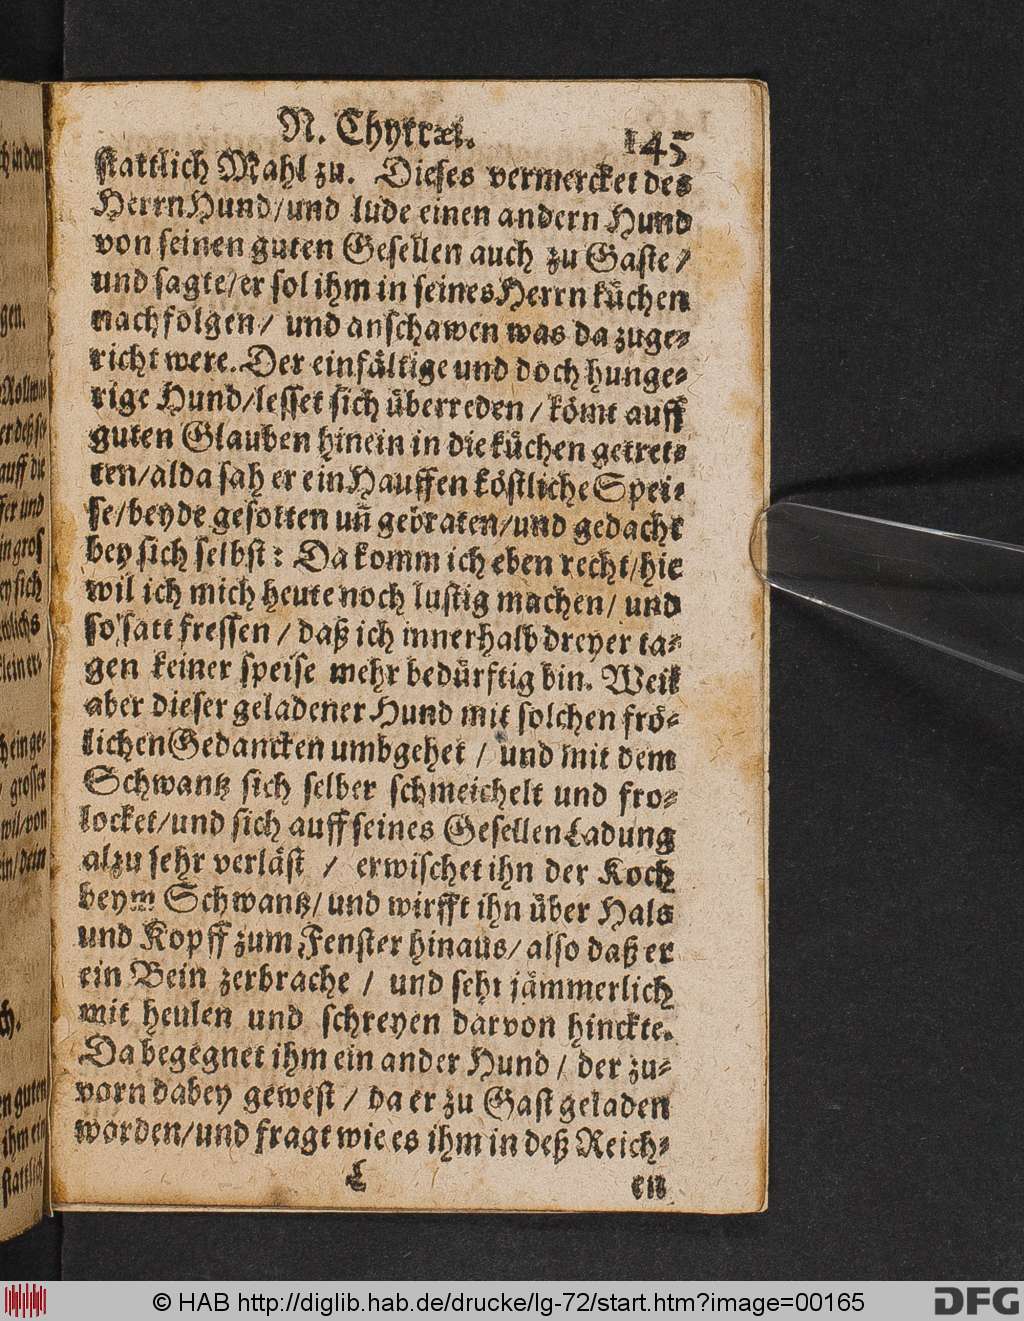 N. Chytræi. 145
stattlich Mahl zu. Dieses vermercket des
Herrn Hund/und lude einen andern Hund
von seinen guten Gesellen auch zu Gaste/
und sagte/er sol ihm in seines Herrn küchen
nachfolgen/ und anschawen was da zuge-
richt were. Der einfältige und doch hunge-
rige Hund/lesset sich überreden/kömt auff
guten Glauben hinein in die küchen getret-
ten/alda sah er ein Hauffen köstliche Spei-
se/beyde gesotten uñ gebraten/und gedacht
bey sich selbst: Da komm ich eben recht/hie
wil ich mich heute noch lustig machen/ und
so satt fressen/ daß ich innerhalb dreyer ta-
gen keiner speise mehr bedürftig bin. Weil
aber dieser geladener Hund mit solchen frö-
lichen Gedancken umbgehet / und mit dem
Schwantz sich selber schmeichelt und fro-
locket/und sich auff seines Gesellen Ladung
alzu sehr verläst / erwischet ihn der Koch
beym Schwantz/ und wirfft ihn über Hals
und Kopff zum Fenster hinaus/ also daß er
ein Bein zerbrache / und sehr jämmerlich
mit heulen und schreyen darvon hinckte.
Da begegnet ihm ein ander Hund / der zu-
vorn dabey gewest / da er zu Gast geladen
worden/und fragt wie es ihm in deß Reich-
L en
© HAB http://diglib.hab.de/drucke/lg-72/start.htm?image=00165
DFG